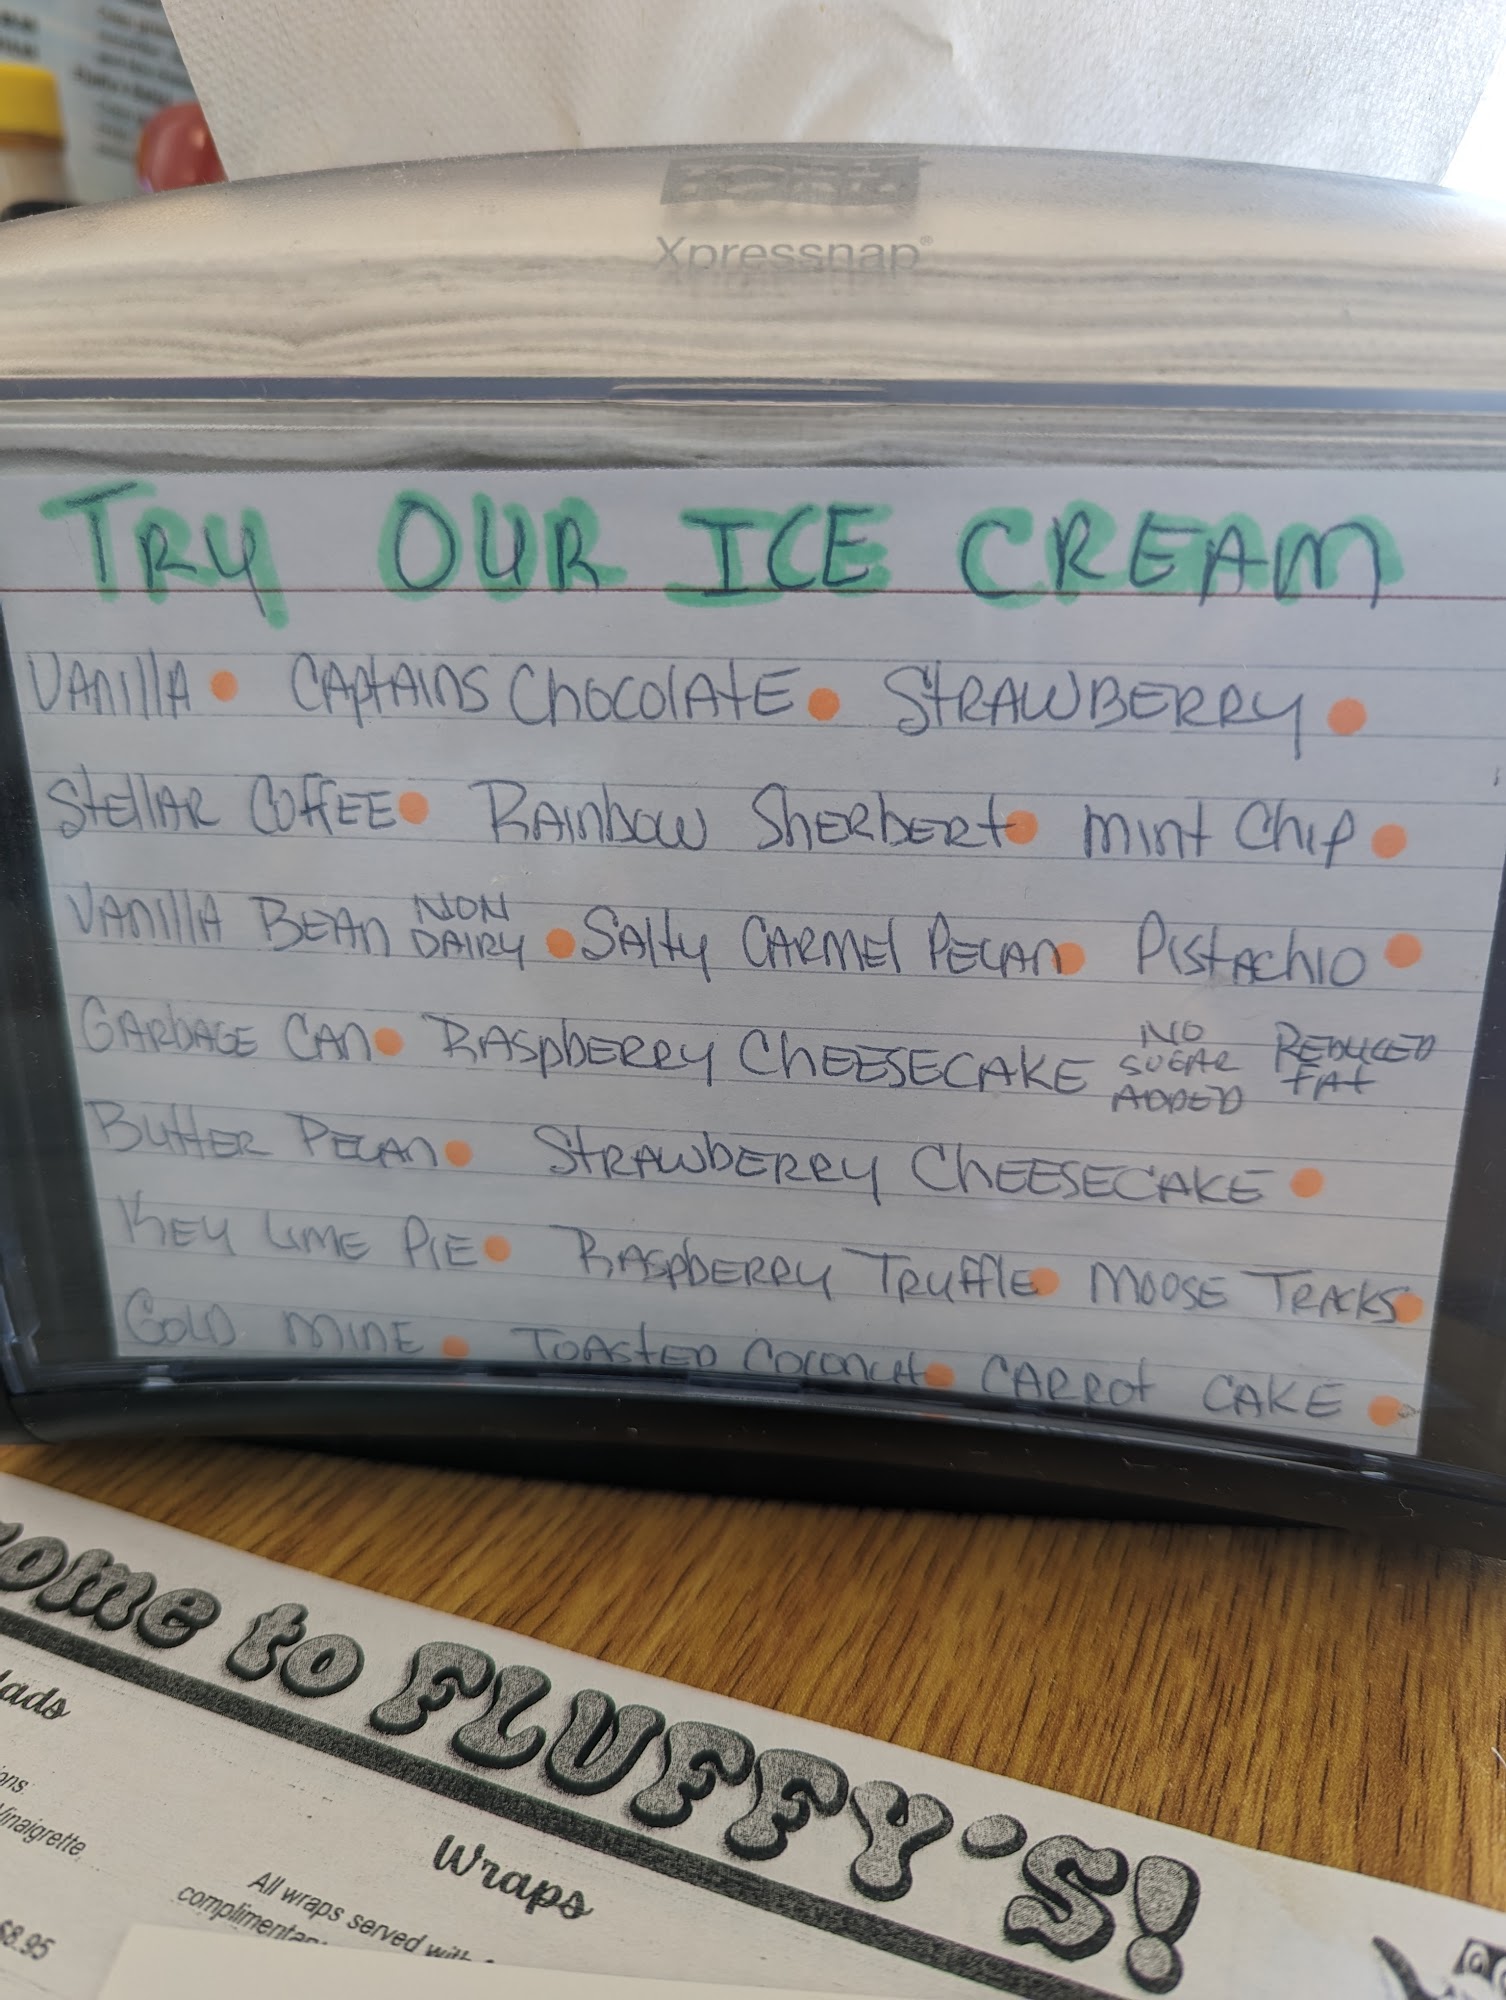 Xpressnap®
TRY OUR ICE CREAM
VANILLA • CAPTAINS CHOCOLATE • STRAWBERRY •
STELLAR COFFEE • RAINBOW SHERBERT • MINT CHIP •
VANILLA BEAN NON DAIRY • SALTY CARMEL PECAN • PISTACHIO •
GARBAGE CAN • RASPBERRY CHEESECAKE NO SUGAR ADDED REDUCED FAT
BUTTER PECAN • STRAWBERRY CHEESECAKE •
KEY LIME PIE • RASPBERRY TRUFFLE • MOOSE TRACKS •
GOLD MINE • TOASTED COCONUT • CARROT CAKE •
ome to FLUFFY'S!
lads
ons
Vinaigrette
$8.95
Wraps
All wraps served with
complimentar